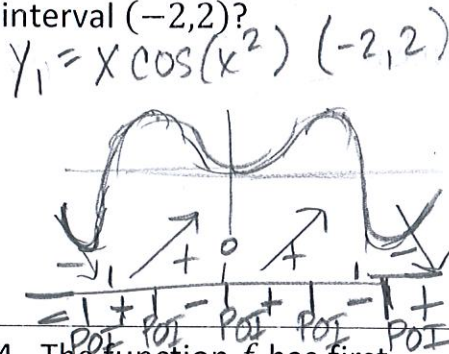 interval (−2,2)?
Y₁ = x cos(x²) (-2, 2)
0
− + + −
− + − + − +
POI POI POI POI POI
4. The function f has first